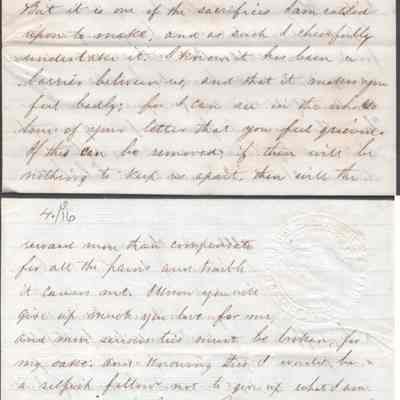 But it is one of the sacrifices I am called
upon to make, and as such I cheerfully
undertake it. I know it has been a
barrier between us, and that it makes you
feel badly; for I can see in the whole
tone of your letter that you feel grieved.
If this can be removed, if there will be
nothing to keep us apart, then will the
4./96
reward more than compensate
for all the pains and trouble
it causes me. When you will
give up much you love for me,
and more serious ties must be broken, for
my sake. And knowing this I would be
a selfish fellow not to give up what I am